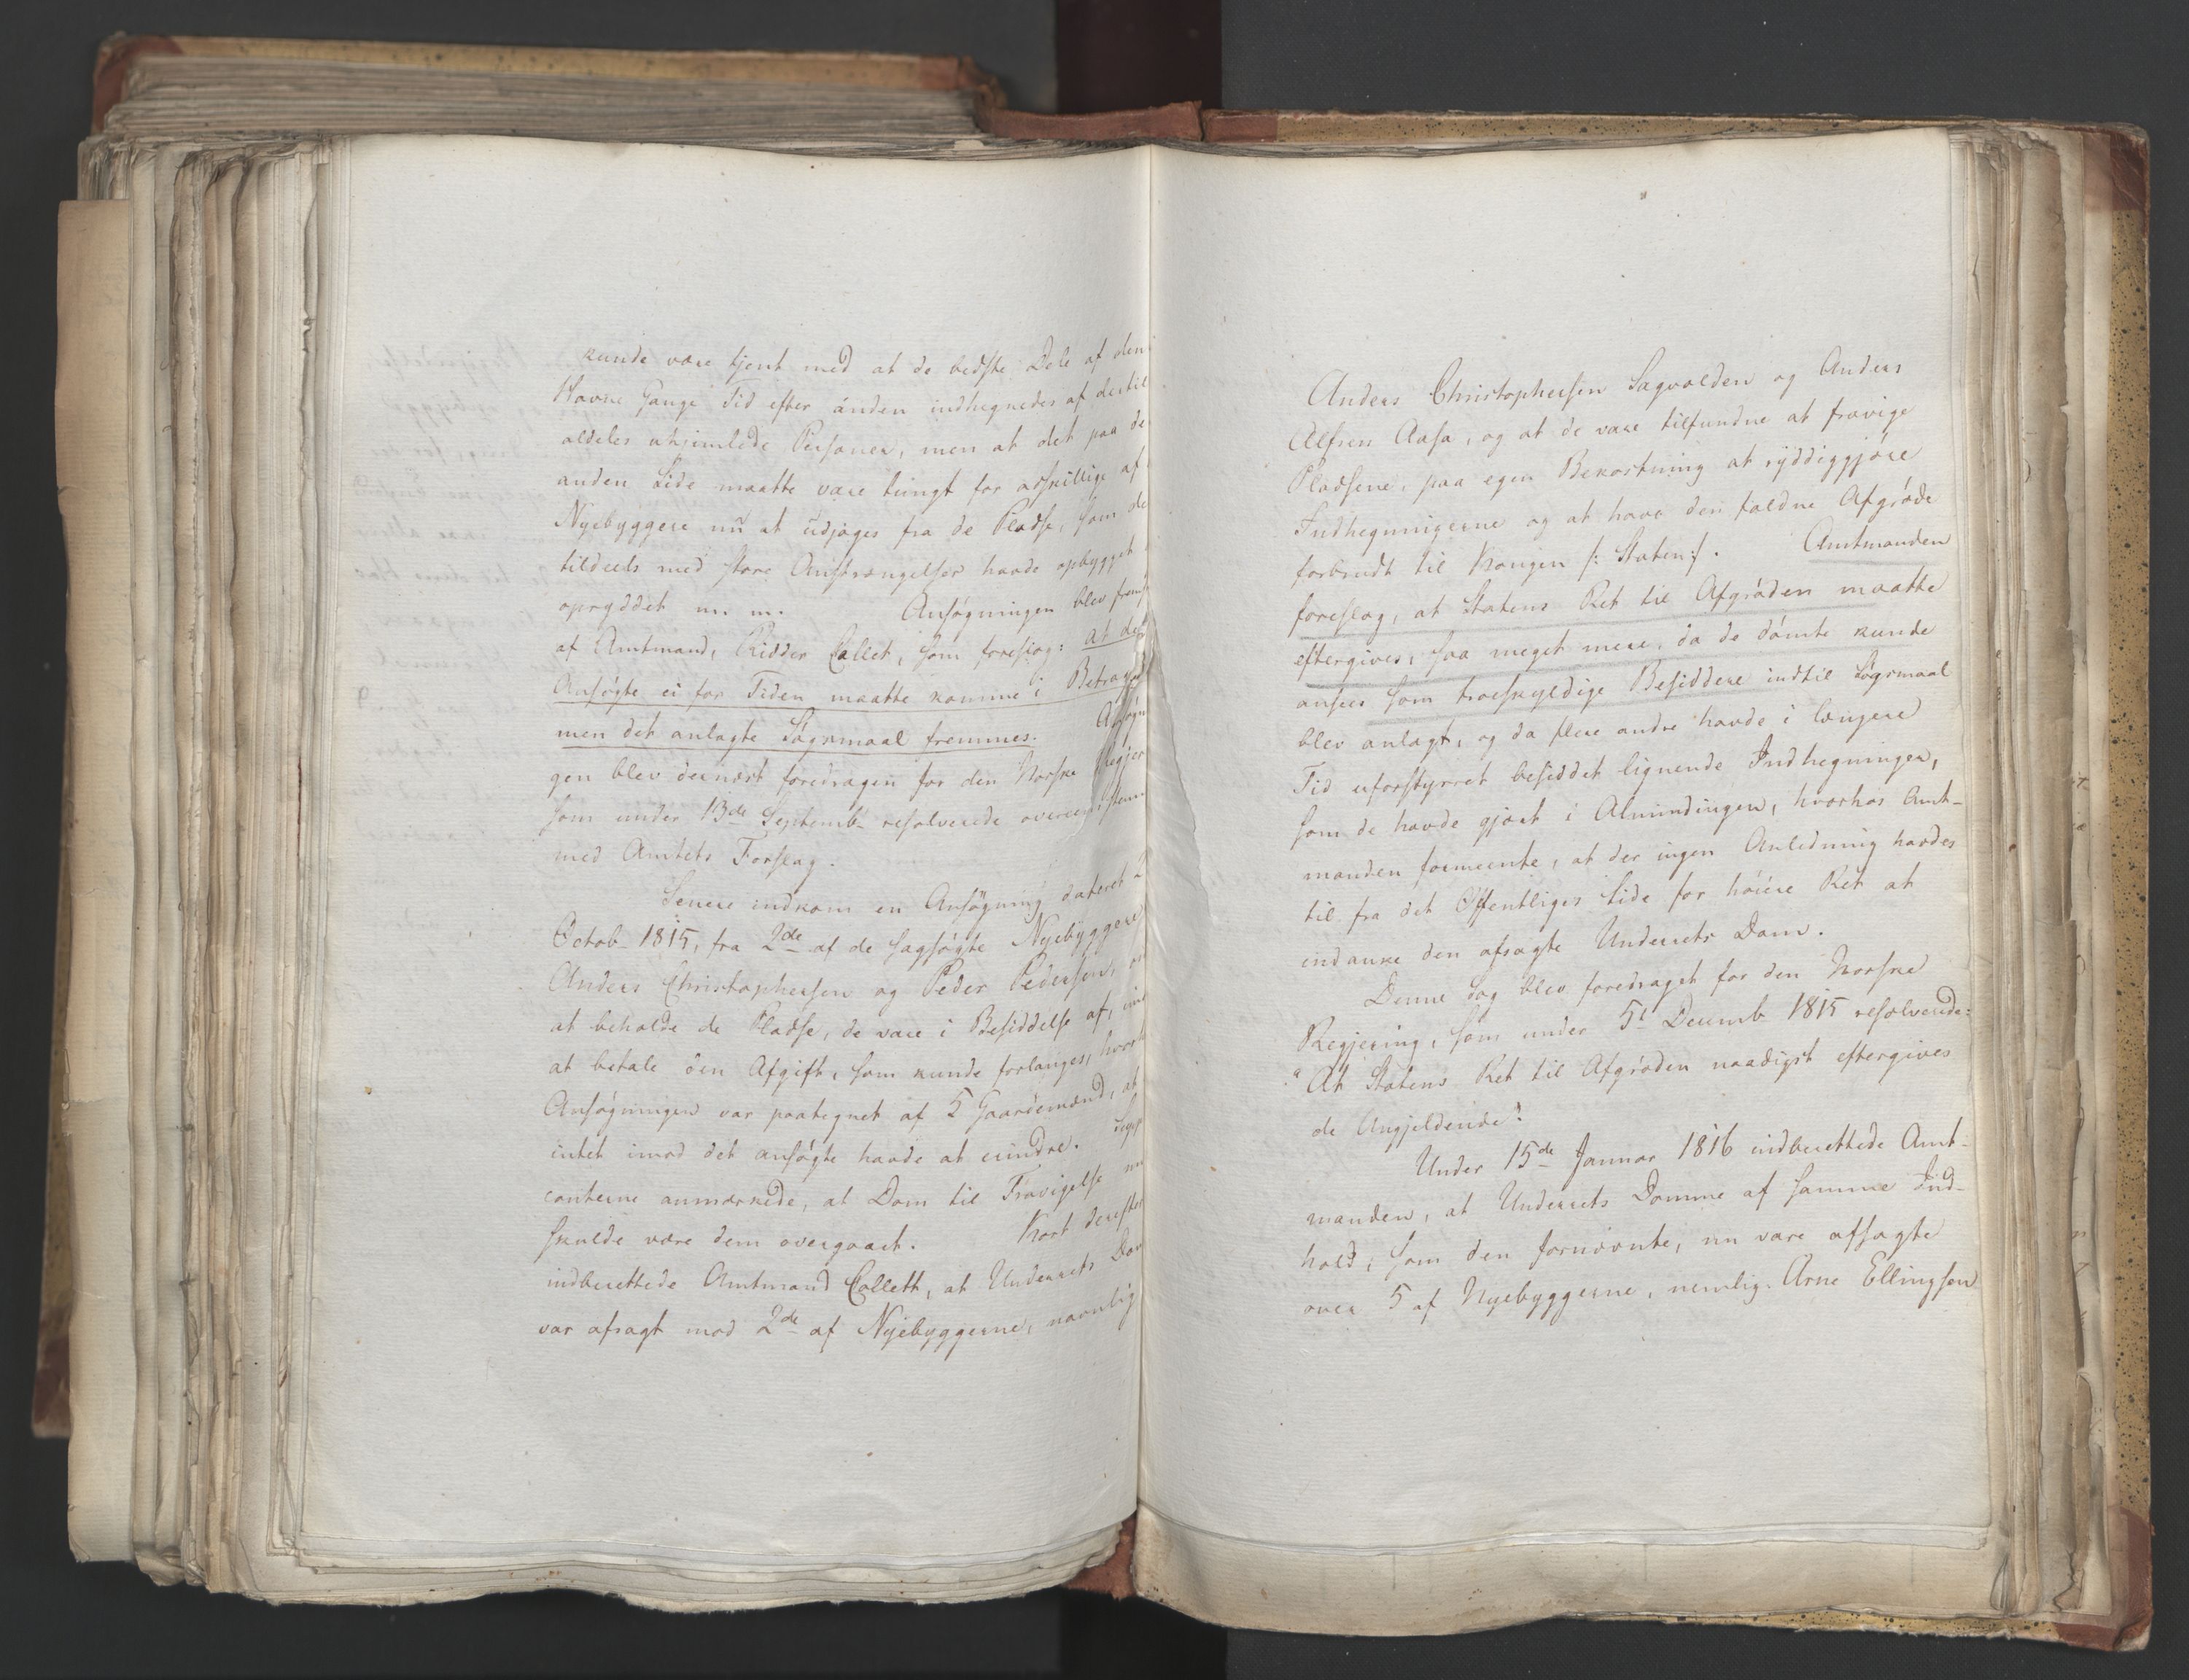 kunde være tjent med at de bedste Dele af den
Havne Gange Tid efter anden indhegnedes af dertil
aldeles uhjemlede Personer, men at det paa de
anden Side maatte være tungt for adskillige af
Nyebyggere nu at udjages fra de Pladse, som de
tildeels med store Anstrængelser havde opbygget
opryddet m. m. Ansøgningen blev frems
af Amtmand, Ridder Collet, som foreslog: at det
Ansøgte ei for Tiden maatte komme i Betragt
men det anlagte Søgsmaal fremmes. Ansøgn
gen blev dernæst foredragen for den Norske Regjer
som under 13de Septemb. resolverede overeenstem
med Amtets Forslag.
Senere indkom en Ansøgning dateret 2
Octob. 1815, fra 2de af de sagsøgte Nyebyggere
Anders Christophersen og Peder Pedersen, om
at beholde de Pladse, de vare i Besiddelse af, imod
at betale den Afgift, som kunde forlanges, hvor
Ansøgningen var paategnet af 5 Gaardemænd, at
intet imod det ansøgte havde at erindre. Supp
canterne anmærkede, at Dom til Fravigelse nu
skulde være dem overgaaet. Kort derefter
indberettede Amtmand Collett, at Underrets Dom
var afsagt mod 2de af Nyebyggerne, navnlig
Anders Christophersen Sagvolden og Anders
Alfsen Aasa, og at de vare tilfundne at fravige
Pladsene, paa egen Bekostning at ryddiggjøre
Indhegningerne og at have den faldne Afgrøde
forbrudt til Kongen /: Staten :/. Amtmanden
foreslog, at Statens Ret til Afgrøden maatte
eftergives, saa meget mere, da de dømte kunde
ansees som troeskyldige Besiddere indtil Søgsmaal
blev anlagt, og da flere andre havde i længere
Tid uforstyrret besiddet lignende Indhegninger,
som de havde gjort i Almindingen, hvorhos Amt-
manden formeente, at der ingen Anledning havdes
til fra det Offentliges Side for høiere Ret at
indanke den afsagte Underrets Dom.
Denne Sag blev foredraget for den Norske
Regjering, som under 5t Decemb 1815 resolverede:
"At Statens Ret til Afgrøden naadigst eftergives
de Angjeldende".
Under 15de Januar 1816 indberettede Amt-
manden, at Underrets Domme af samme Ind-
hold, som den fornævnte, nu vare afsagte
over 5 af Nyebyggerne, nemlig: Arne Ellingsen